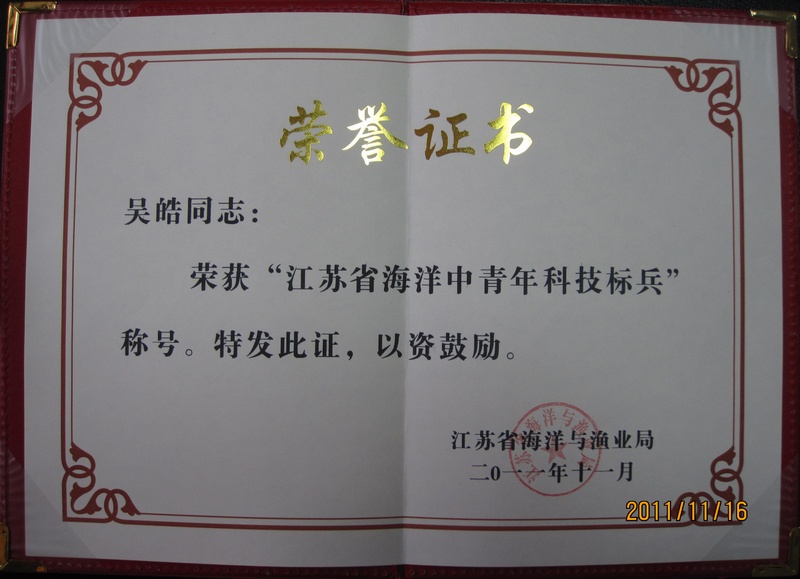 荣誉证书
吴皓同志：
荣获“江苏省海洋中青年科技标兵”
称号。特发此证，以资鼓励。
江苏省海洋与渔业局
二0一一年十一月
江苏省海洋与渔业局
2011/11/16